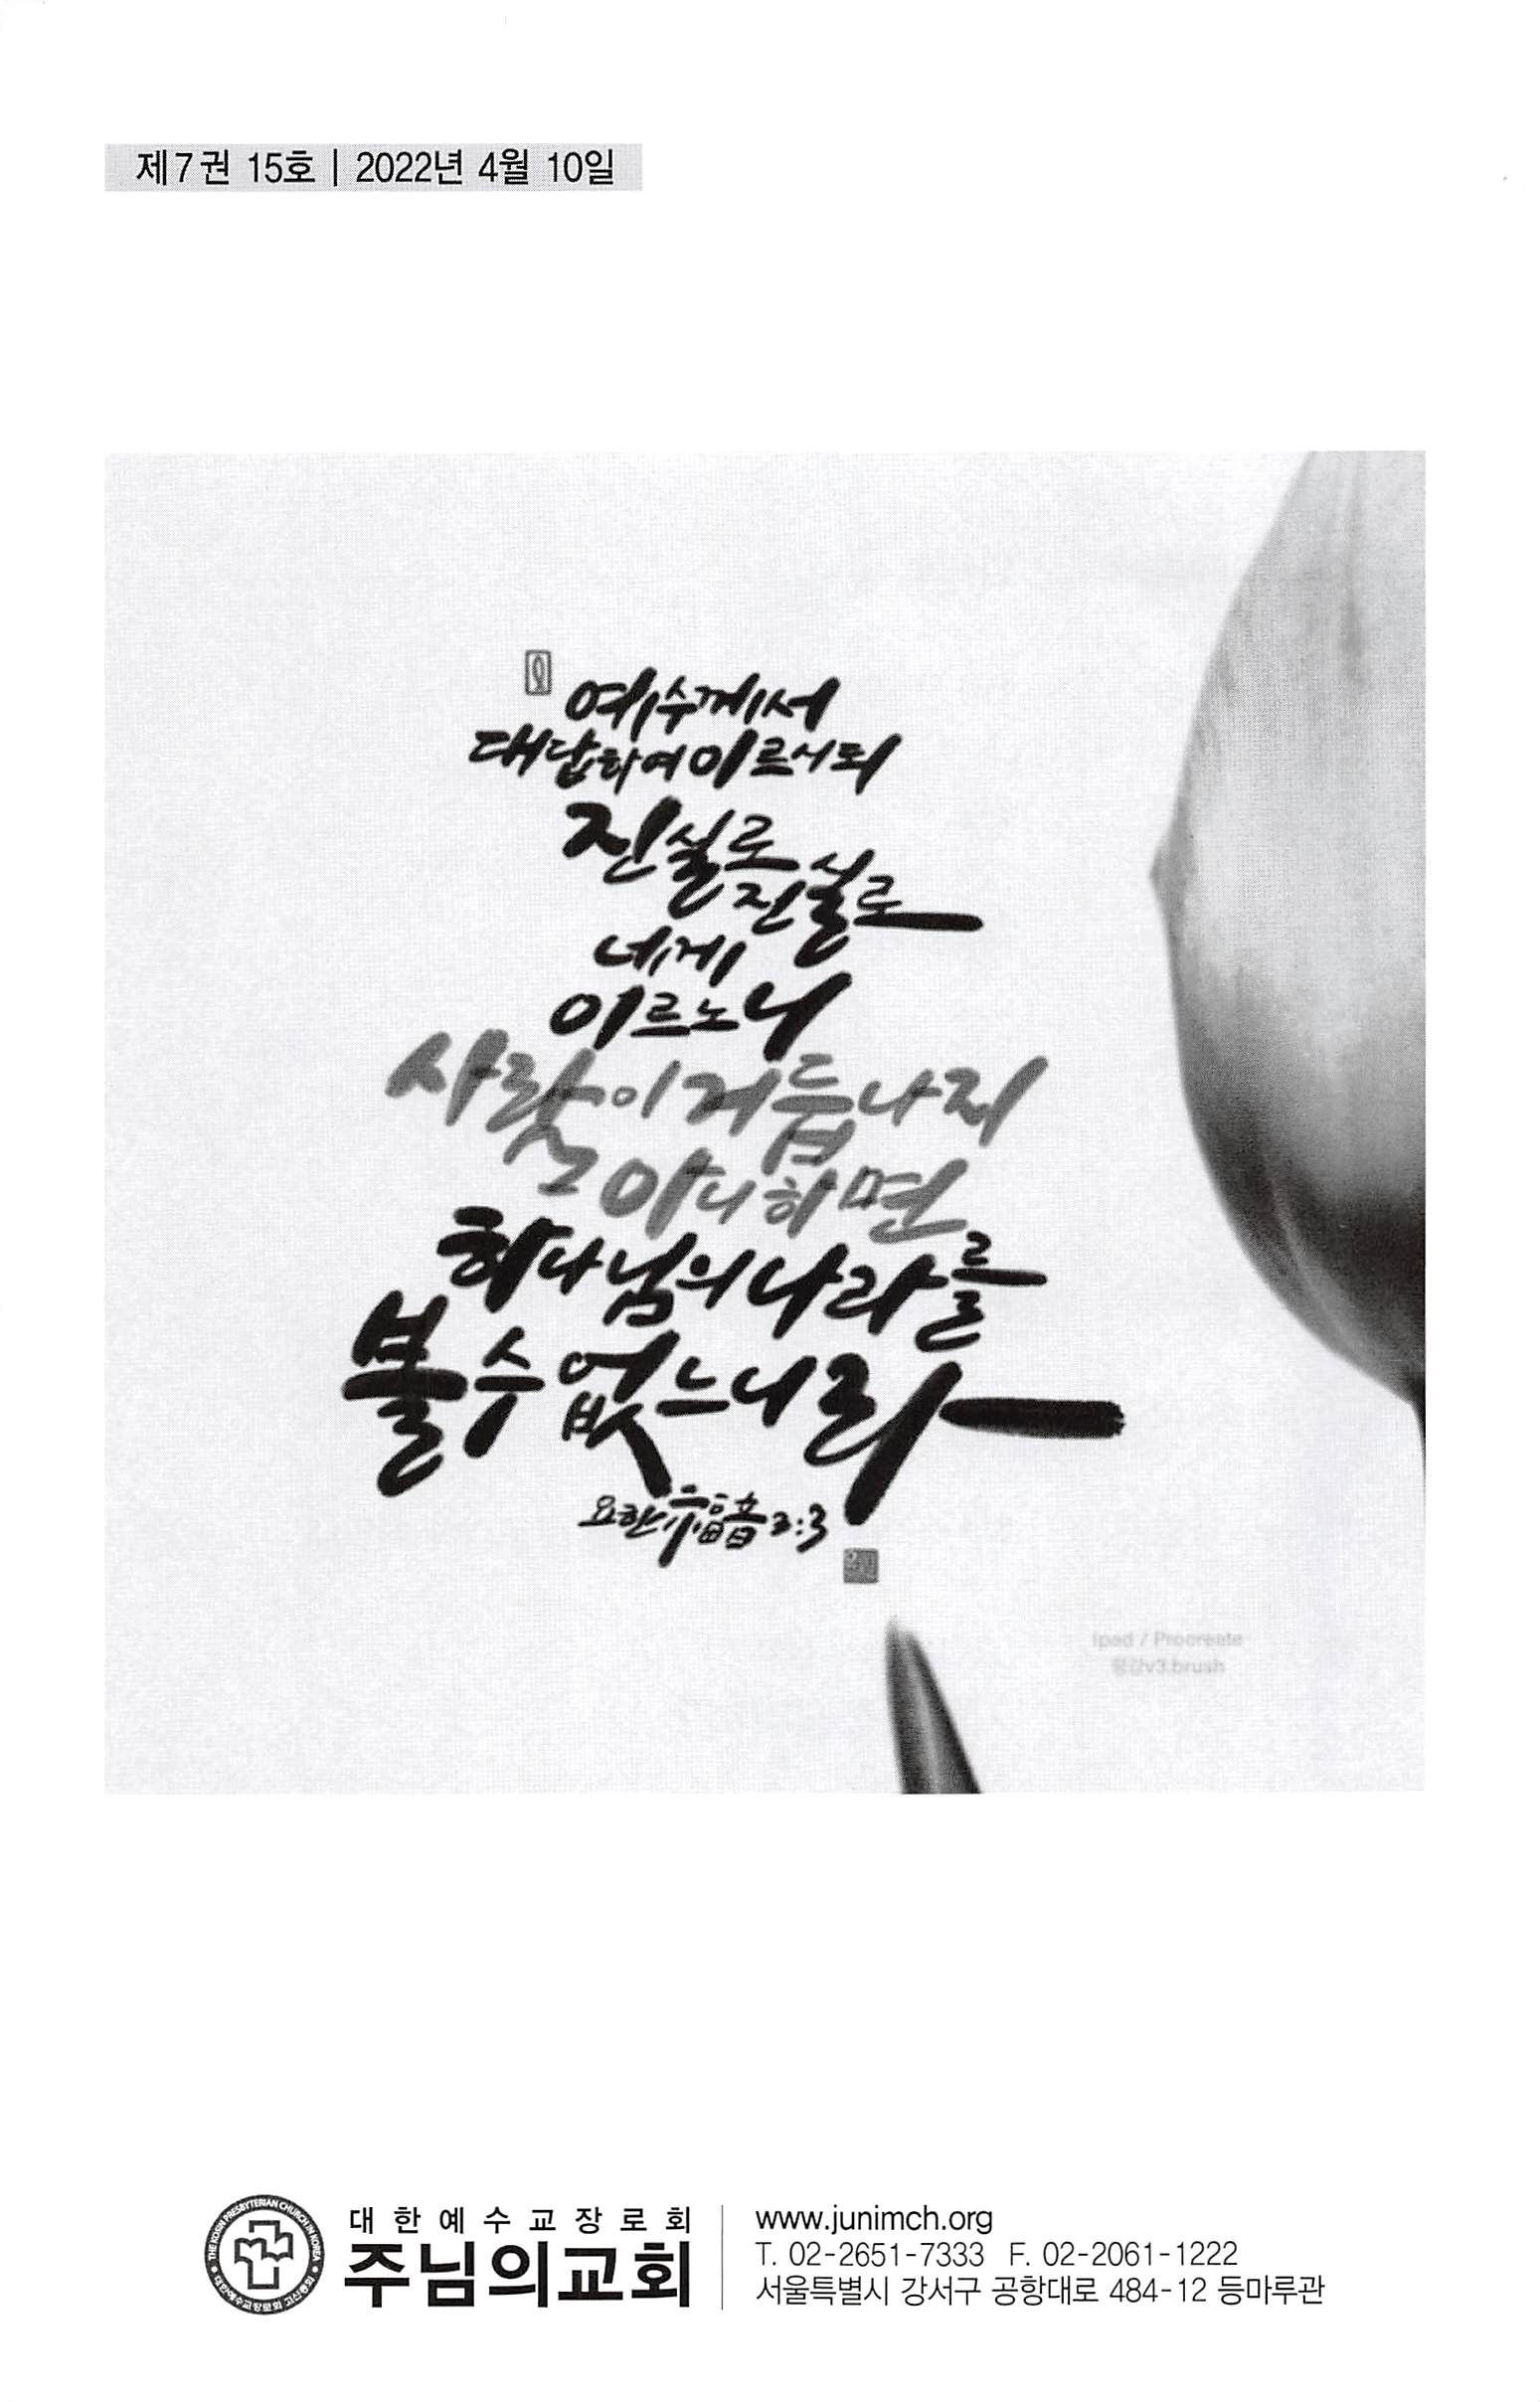 제7권 15호 | 2022년 4월 10일
예수께서
대답하여 이르시되
진실로
진실로
네게
이르노니
사람이 거듭나지
아니하면
하나님의 나라를
볼 수 없느니라
요한福音 3:3
Ipad / Procreate
v3.brush
THE KOSIN PRESBYTERIAN CHURCH IN KOREA
대한예수교장로회 고신총회
대한예수교장로회
주님의교회
www.junimch.org
T. 02-2651-7333 F. 02-2061-1222
서울특별시 강서구 공항대로 484-12 등마루관